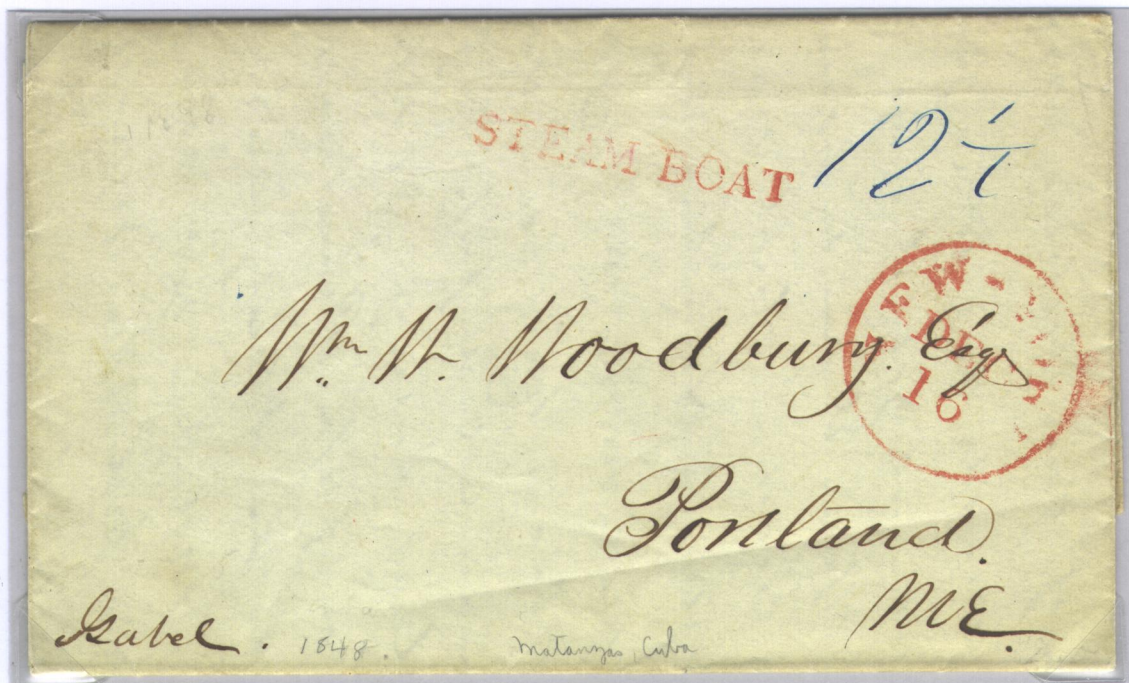 STEAM BOAT
12½
NEW-YORK
DEC
16
Wm. H. Woodbury. Esqr
Portland.
ME
Isabel. 1848.
Matanzas, Cuba